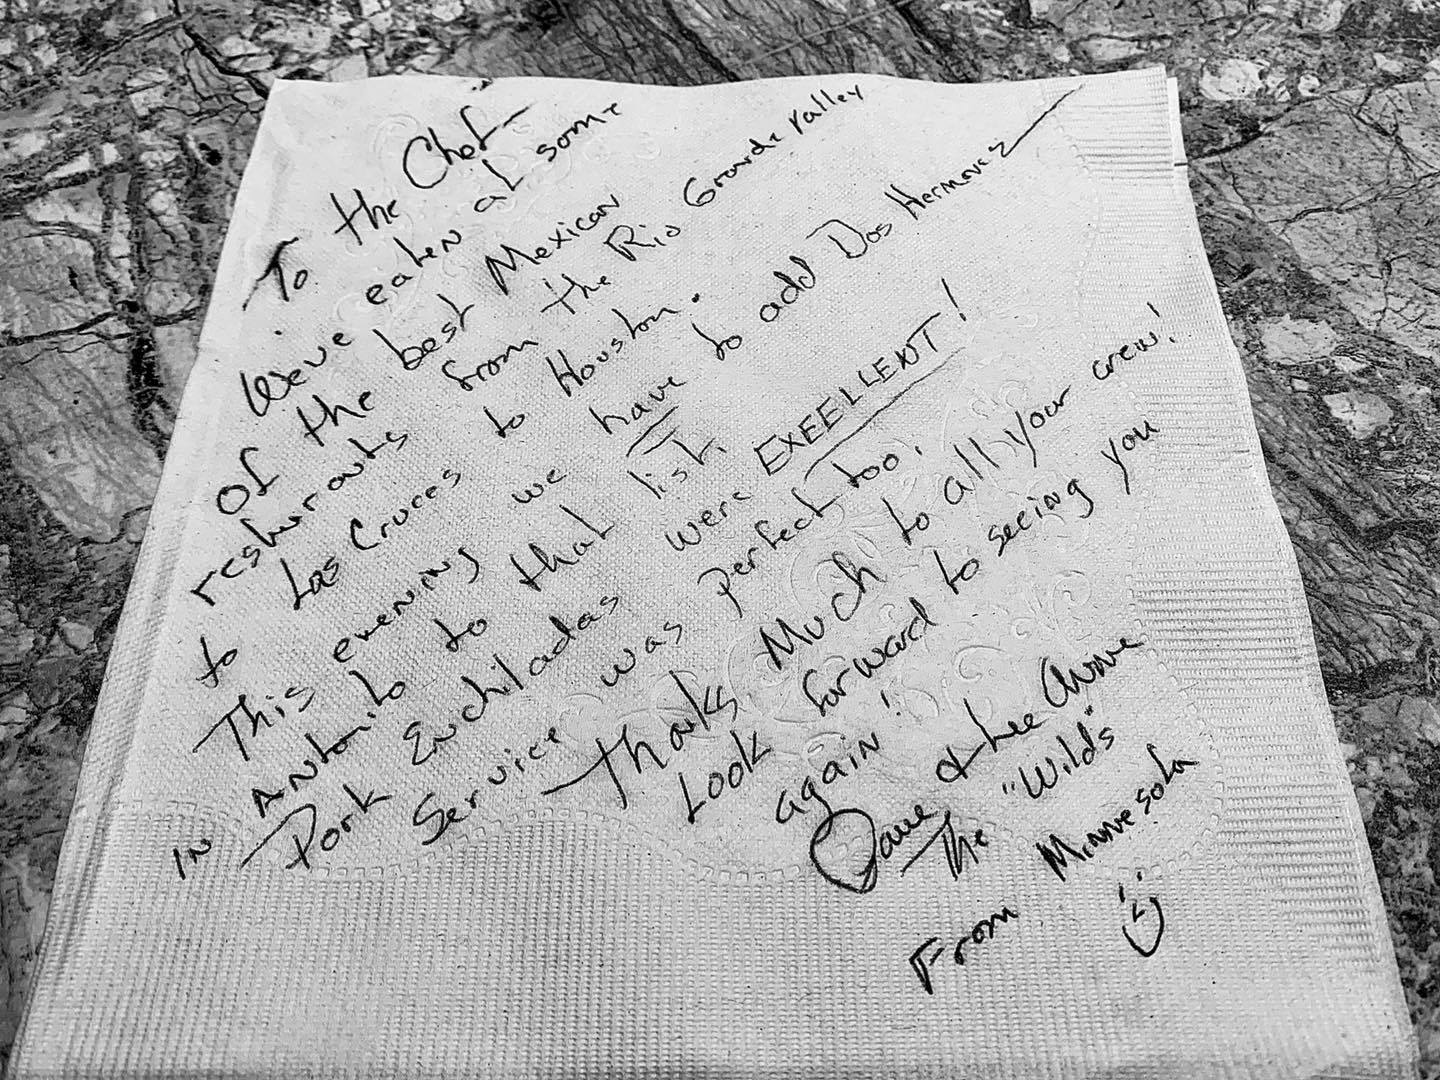 To the Chef
We've eaten at some
of the best Mexican
resturants from the Rio Grande Valley
to Las Cruces to Houston.
This evening we have to add Dos Hermanez
in Antonito to that list.
Pork Enchiladas were EXEELLENT!
Service was perfect too.
Thanks Much to all your crew!
Look forward to seeing you
again!
Dave & Lee Anne
The "Wilds"
From Minnesota